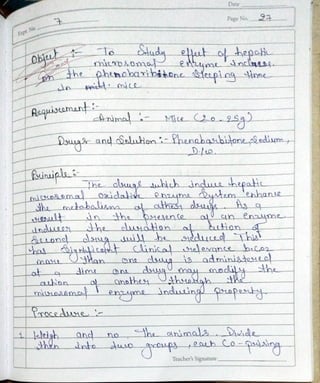 Date
Expt. No. 7
Page No. 27
Object :- To Study effect of hepatic
microsomal enzyme inducer
on the phenobarbitone sleeping time
in mice.
Requirement :-
Animal :- Mice (20-25g)
Drugs and Solution :- Phenobarbitone Sodium,
D/w.
Principle :-
The drugs which induce hepatic
microsomal oxidative enzyme system enhance
the metabolism of other drugs. As a
result in the presence of an enzyme
inducer the duration of action of
second drug will be reduced This
has significant clinical relevance becoz
more than one drug is administered
at a time one drug may modify the
action of another through the
microsomal enzyme inducing property.
Procedure :-
1. Weigh and no the animals. Divide
then into two groups, each Co-prising
Teacher's Signature